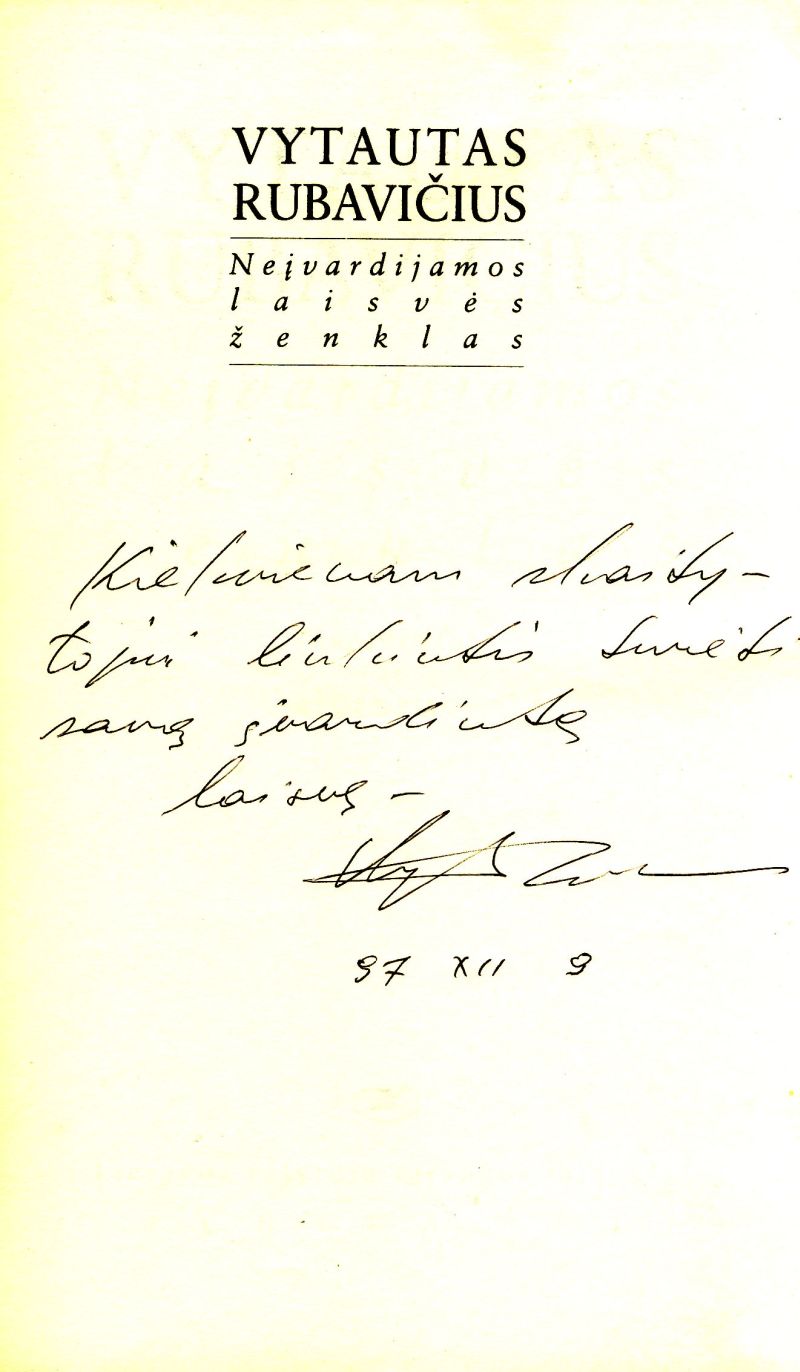 VYTAUTAS
RUBAVIČIUS
Neįvardijamos
laisvės
ženklas
Kiekvienam skaity-
tojui linkintis turėti
savą įvardintą
laisvę –
97 XII 9